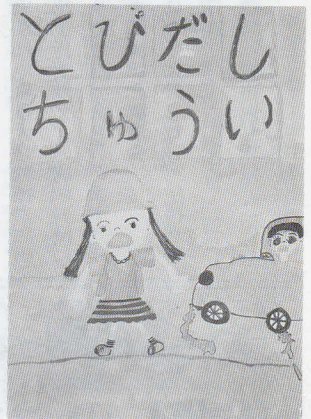 とびだし
ちゅうい